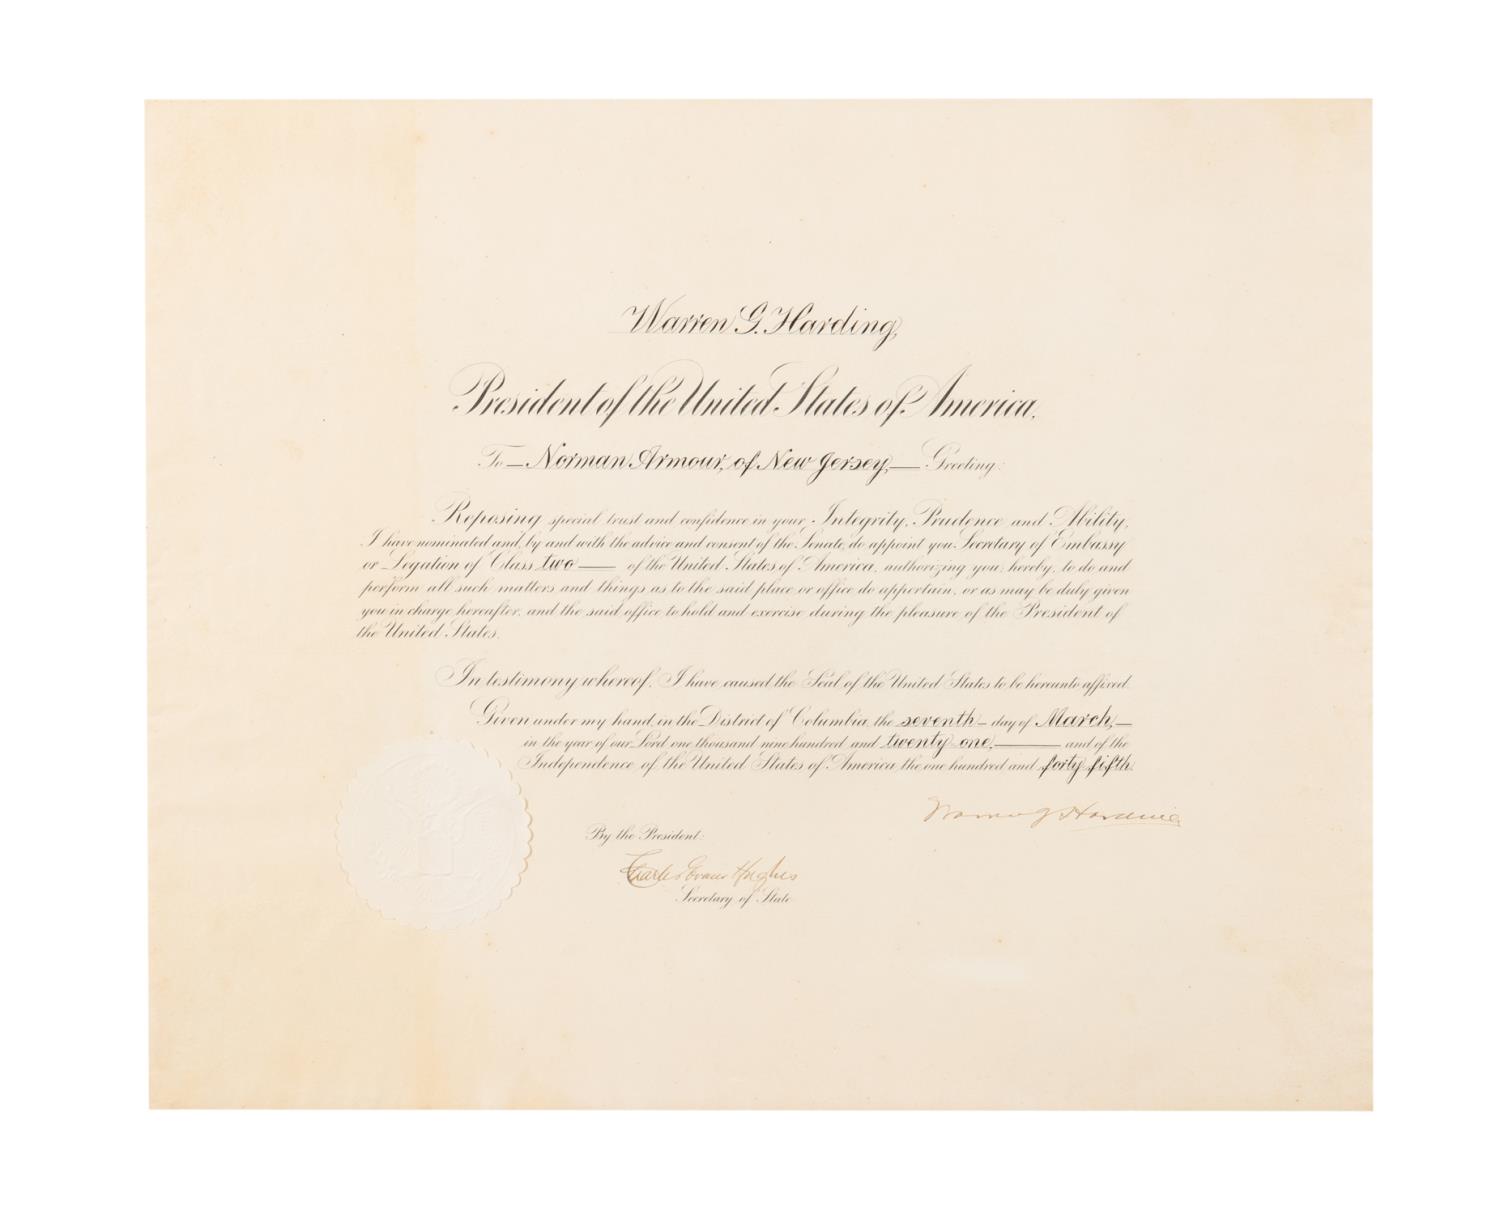 Warren G. Harding,
President of the United States of America.
To — Norman Armour, of New Jersey, — Greeting:
Reposing special trust and confidence in your Integrity, Prudence and Ability,
I have nominated and, by and with the advice and consent of the Senate, do appoint you Secretary of Embassy
or Legation of Class two — of the United States of America, authorizing you, hereby, to do and
perform all such matters and things as to the said place or office do appertain, or as may be duly given
you in charge hereafter, and the said office to hold and exercise during the pleasure of the President of
the United States.
In testimony whereof, I have caused the Seal of the United States to be hereunto affixed.
Given under my hand, in the District of Columbia, the seventh — day of March, —
in the year of our Lord one thousand nine hundred and twenty one, — and of the
Independence of the United States of America, the one hundred and forty fifth.
Warren G Harding
By the President:
Charles Evans Hughes
Secretary of State